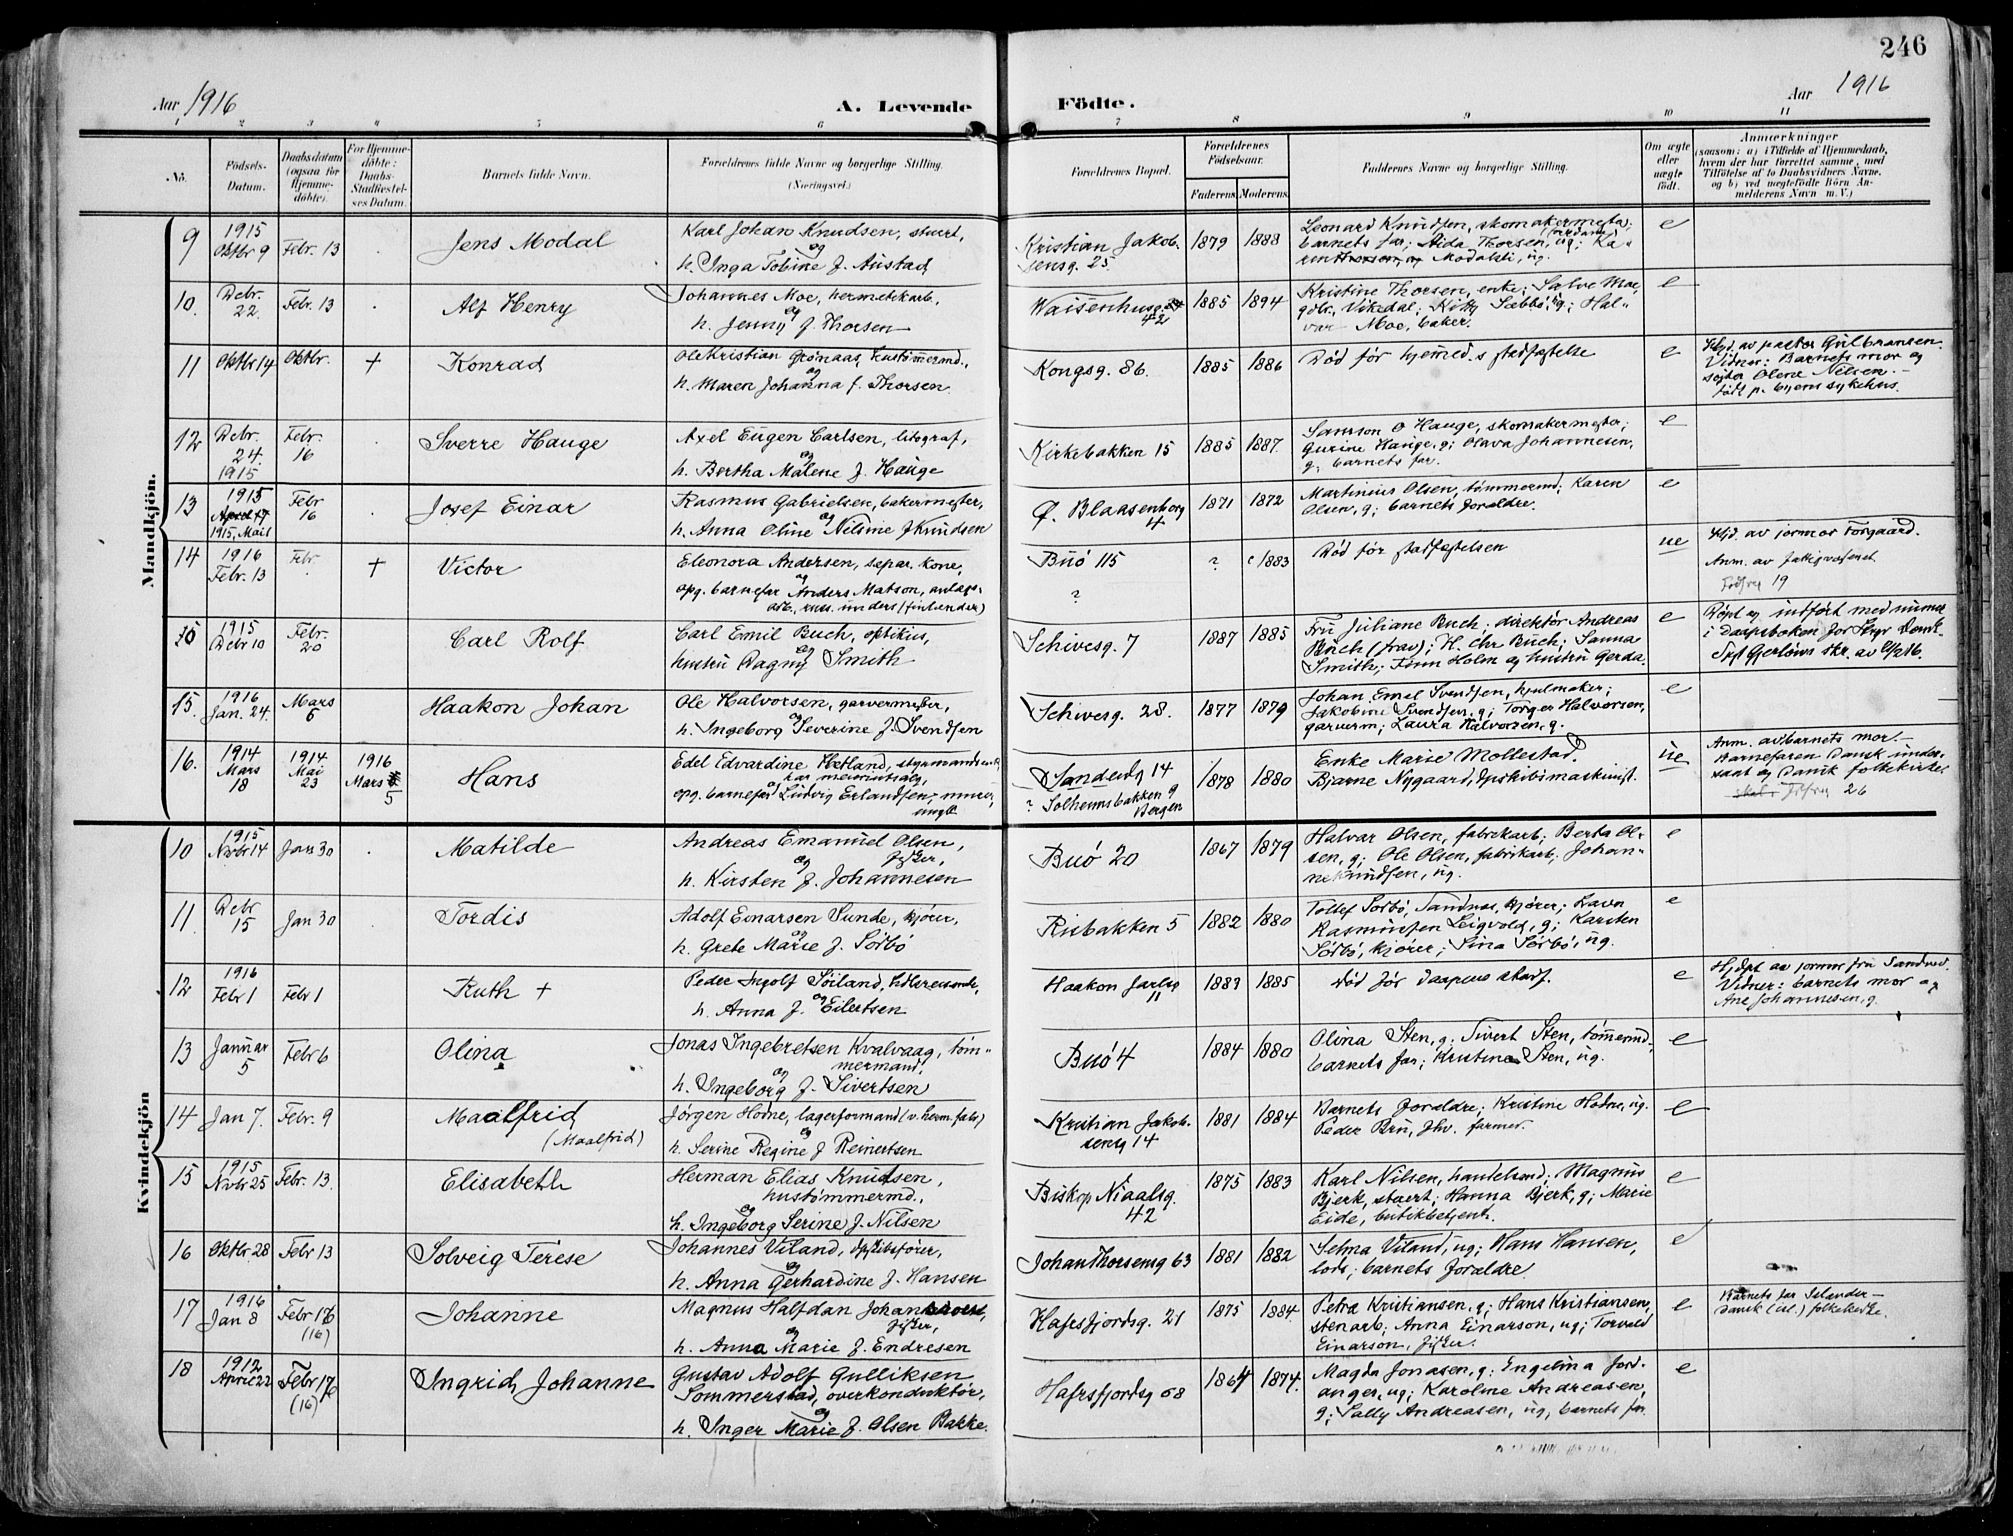 246
Aar 1916
A. Levende Födte.
Aar 1916
1 2 3 4 5 6 7 8 9 10 11
No.
Födsels-Datum.
Daabsdatum (ogsaa for Hjemmedöbte).
For Hjemmedöbte: Daabs-Stadfæstelses Datum.
Barnets fulde Navn.
Forældrenes fulde Navne og borgerlige Stilling. (Næringsvei.)
Forældrenes Bopæl.
Forældrenes Födselsaar.
Faderens. Moderens.
Faddernes Navne og borgerlige Stilling.
Om ægte eller uægte födt.
Anmærkninger
(saasom: a) i Tilfælde af Hjemmedaab, hvem der har forrettet samme, med Tilföielse af to Daabsvidners Navne. og b) ved uægtefödte Börn Anmelderens Navn m. V.)
Mandkjön.
9 1915 Oktbr 9 Febr. 13 Jens Modal Karl Johan Knudsen, stuert, og h. Inga Tobine f. Austad Kristian Jakobsensg. 25 1879 1888 Leonard Knudsen, skomakermester; barnets far; Aida Thorsen, ug; Modalsli, ug. e
10. Debr. 22. Febr. 13 Alf Henry Johannes Moe, hermetikarb, og h. Jenny f. Thorsen Waisenhusg. 42 1885 1894 Kristine Thorsen, enke; Salve Moe, gdbr., Vikedal; Kitty Sæbbö, ug; Halvar Moe, baker. e
11 Oktbr 14 Oktbr. + Konrad Ole Kristian Grönaas, hustömmermd., og h. Maren Johanna f. Thorsen. Kongsg. 86. 1885 1886 Död för hjemmed.s stadfæstelse e Hjd. av pastor Gulbransen. Vidner: Barnets mor og Olene Nilsen. - födt p. byens sykehus.
12 Debr. 24. 1915 Febr. 16 Sverre Hauge Axel Eugen Carlsen, litograf, og h. Bertha Malene f. Hauge Kirkebakken 15 1885 1887. Samson O Hauge, skomakermester; Gurine Hauge, g; Olava Johannesen, g; barnets far. e
13 1915 1915, Mai 1 Febr 16 Josef Einar Rasmus Gabrielsen, bakermester, og h. Anna Oline Nilsine f Knudsen Ø. Blaasenborg 4 1871 1872 Martinius Olsen, tömmermd, Karen Olsen, g; barnets foraldre. e
14 1916 Febr. 13 Febr. + Victor Eleonora Andersen, separ. kone, og opg. barnefar Anders Matson, anlægsarb., russ. unders (finlænder) Buö 115 ? ? 1883 Död för stadfæstelsen ue Hjd. av jormor Torgaard. Anm. av fattigvæsenet 19
15 1915 Debr 10 Febr. 20 Carl Rolf Carl Emil Buch, optikus, og hustru Dagny Smith Schivesg. 7 1887 1885 Fru Juliane Buch; direktör Andreas Buch (frav); H. Chr Buch; Sanna Smith; Finn Holm og hustru Gerda. e Döpt og indfört med numer i daapsboken for
15. 1916 Jan. 24. Mars 5 Haakon Johan Ole Halvorsen, garvermester, og h. Ingeborg Severine f. Svendsen Schivesg. 28. 1877 1879 Johan Emil Svendsen, hjulmaker; Jakobine Svendsen, g; Torger Halvorsen, garverm; Laura Halvorsen, g. e
16. 1914 Mars 18 1914 Mai 23 1916 Mars 5 Hans Edel Edvardine Hetland, styrmandsenke, og opg. barnefar Ludvig Erlandsen, murer, ungk Sandeidg 14 ? Solheimsbakken 9 Bergen 1878 1880 Enke Marie Mollestad. Bjarne Nygaard, dpskibsmaskinist. ue Anm. av barnets mor. - Barnefaren Dansk undersaat og Dansk folkekirke 26
Kvindekjön
10 1915 Novbr 14 Jan 30 Matilde Andreas Emanuel Olsen, fisker, og h. Kirsten f. Johannesen Buö 20 1867 1879 Halvar Olsen, fabrikarb; Berta Olsen, g; Ole Olsen, fabrikarb; Johanne Knudsen, ug. e
11 Debr 15 Jan 30 Tordis Adolf Einarsen Sunde, kjörer, og h. Grete Marie f. Sörbö Risbakken 5 1882 1880 Tollef Sörbö, Sandnes, kjörer; Rasmussen Leigvold, g; Karsten Sörbö, kjörer; Sina Sörbö, ug. e
12 1916 Febr 1 Febr 1 Ruth + Peder Ingolf Söiland, hdlsreisende, og h. Anna f. Eilertsen Haakon Jarlsg 11 1883 1885 död för daapens stadf. e Hjdpt av jormor fru Sandved. Vidner: barnets mor og Ane Johannesen, g.
13 Januar 5 Febr 6 Olina Jonas Ingebretsen Kvalvaag, tömmermand, og h. Ingeborg f. Sivertsen Buö 4 1884 1880 Olina Sten, g; Sivert Sten, tömmermd, barnets far; Kristina Sten, ug. e
14 Jan 7. Febr. 9 Maalfrid (Maalfrid) Jörgen Hodne, lagerformand (v. herm. fabr) og h. Serine Regine f Reinertsen Kristian Jakobsensg 14 1881 1884 Barnets foraldre; Kristine Hodne, ug. Peder Bru, fhv. farmer. e
15 1915 Novbr 25 Febr. 13. Elisabeth Herman Elias Knudsen, hustömmermd., og h. Ingeborg Serine f. Nilsen Biskop Niaalsg. 42 1875 1883 Karl Nilsen, handelsmd; Magnus Bjerk, stuert; Hanna Bjerk, g; Marie Eide, butikbetjent. e
16 Oktbr 28 Febr 13 Solveig Terese Johannes Viland, dpskibsförer, og h. Anna Gerhardine f. Hansen Johan Thorsensg 63 1881 1882 Selma Viland, ug; Hans Hansen, lods; barnets foraldre. e
17 1916 Jan 8 Febr 16 (16) Johanne Magnus Halfdan fisker, og h. Anna Marie f. Endresen Hafrsfjordsg. 21 1875 1884. Petra Kristiansen, g; Hans Kristiansen, stenarb; Anna Einarson, ug; Torvald Einarson, fisker. e Barnets far Islænder - dansk (isl.) folkekirke.
18 1912 April 22 Febr 16 (16) Ingrid Johanne Gustav Adolf Gulliksen Sommerstad, overkonduktör, og h. Inger Marie f. Olsen Bakke. Hafrsfjordsg 68 1864 1874. Magda Jonasen, g; Engelina Jordanger, ug; Karoline Andreasen, g; Sally Andreasen, ug, barnets far. e